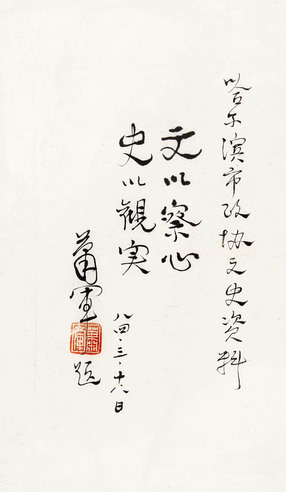 哈尔滨市政协文史资料
文以察心
史以観实
八四·三·十八日
萧军
题